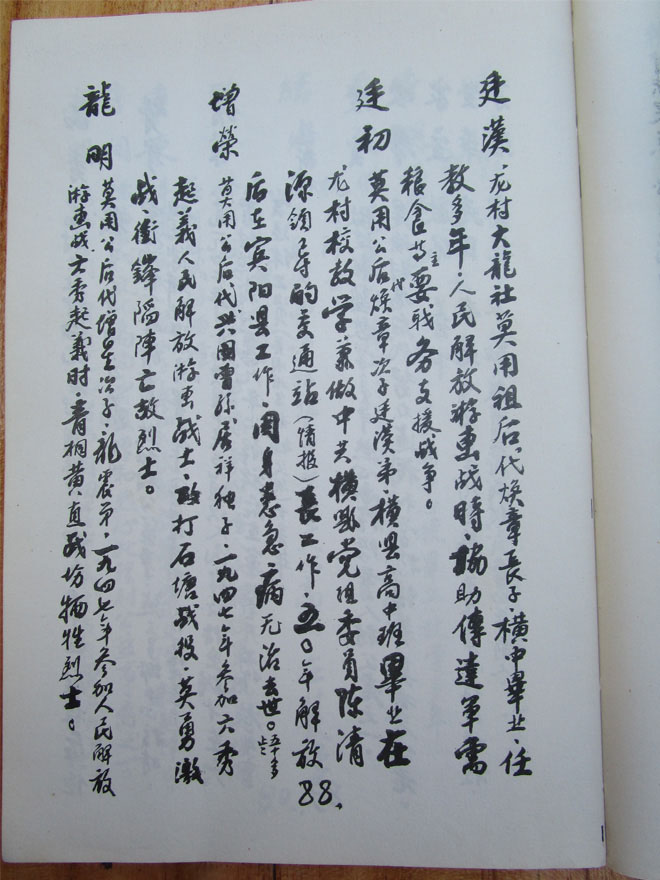 廷漢，龙村大龍社莫用祖后代焕章長子，横中畢业，任
教多年，人民解放游击战時，協助傳達军需
粮食等主要战务支援战争。
廷初 莫用公后代焕章次子廷漢弟，横県高中班畢业在
龙村校教学兼做中共横縣党组委員陈清
源領导的交通站（情报）長工作，五〇年解放
后在宾阳县工作，因身患急病无治去世。五十多
岁
增榮 莫用公后代兴國曾孙展祥独子，一九四七年参加六秀
起義人民解放游击战士，攻打石塘战役，英勇激
战，衝鋒陷陣亡故烈士。
龍明 莫用公后代增 次子，龍震弟，一九四七年参加人民解放
游击战士六秀起義时，青桐黄直战场牺牲烈士。
88，